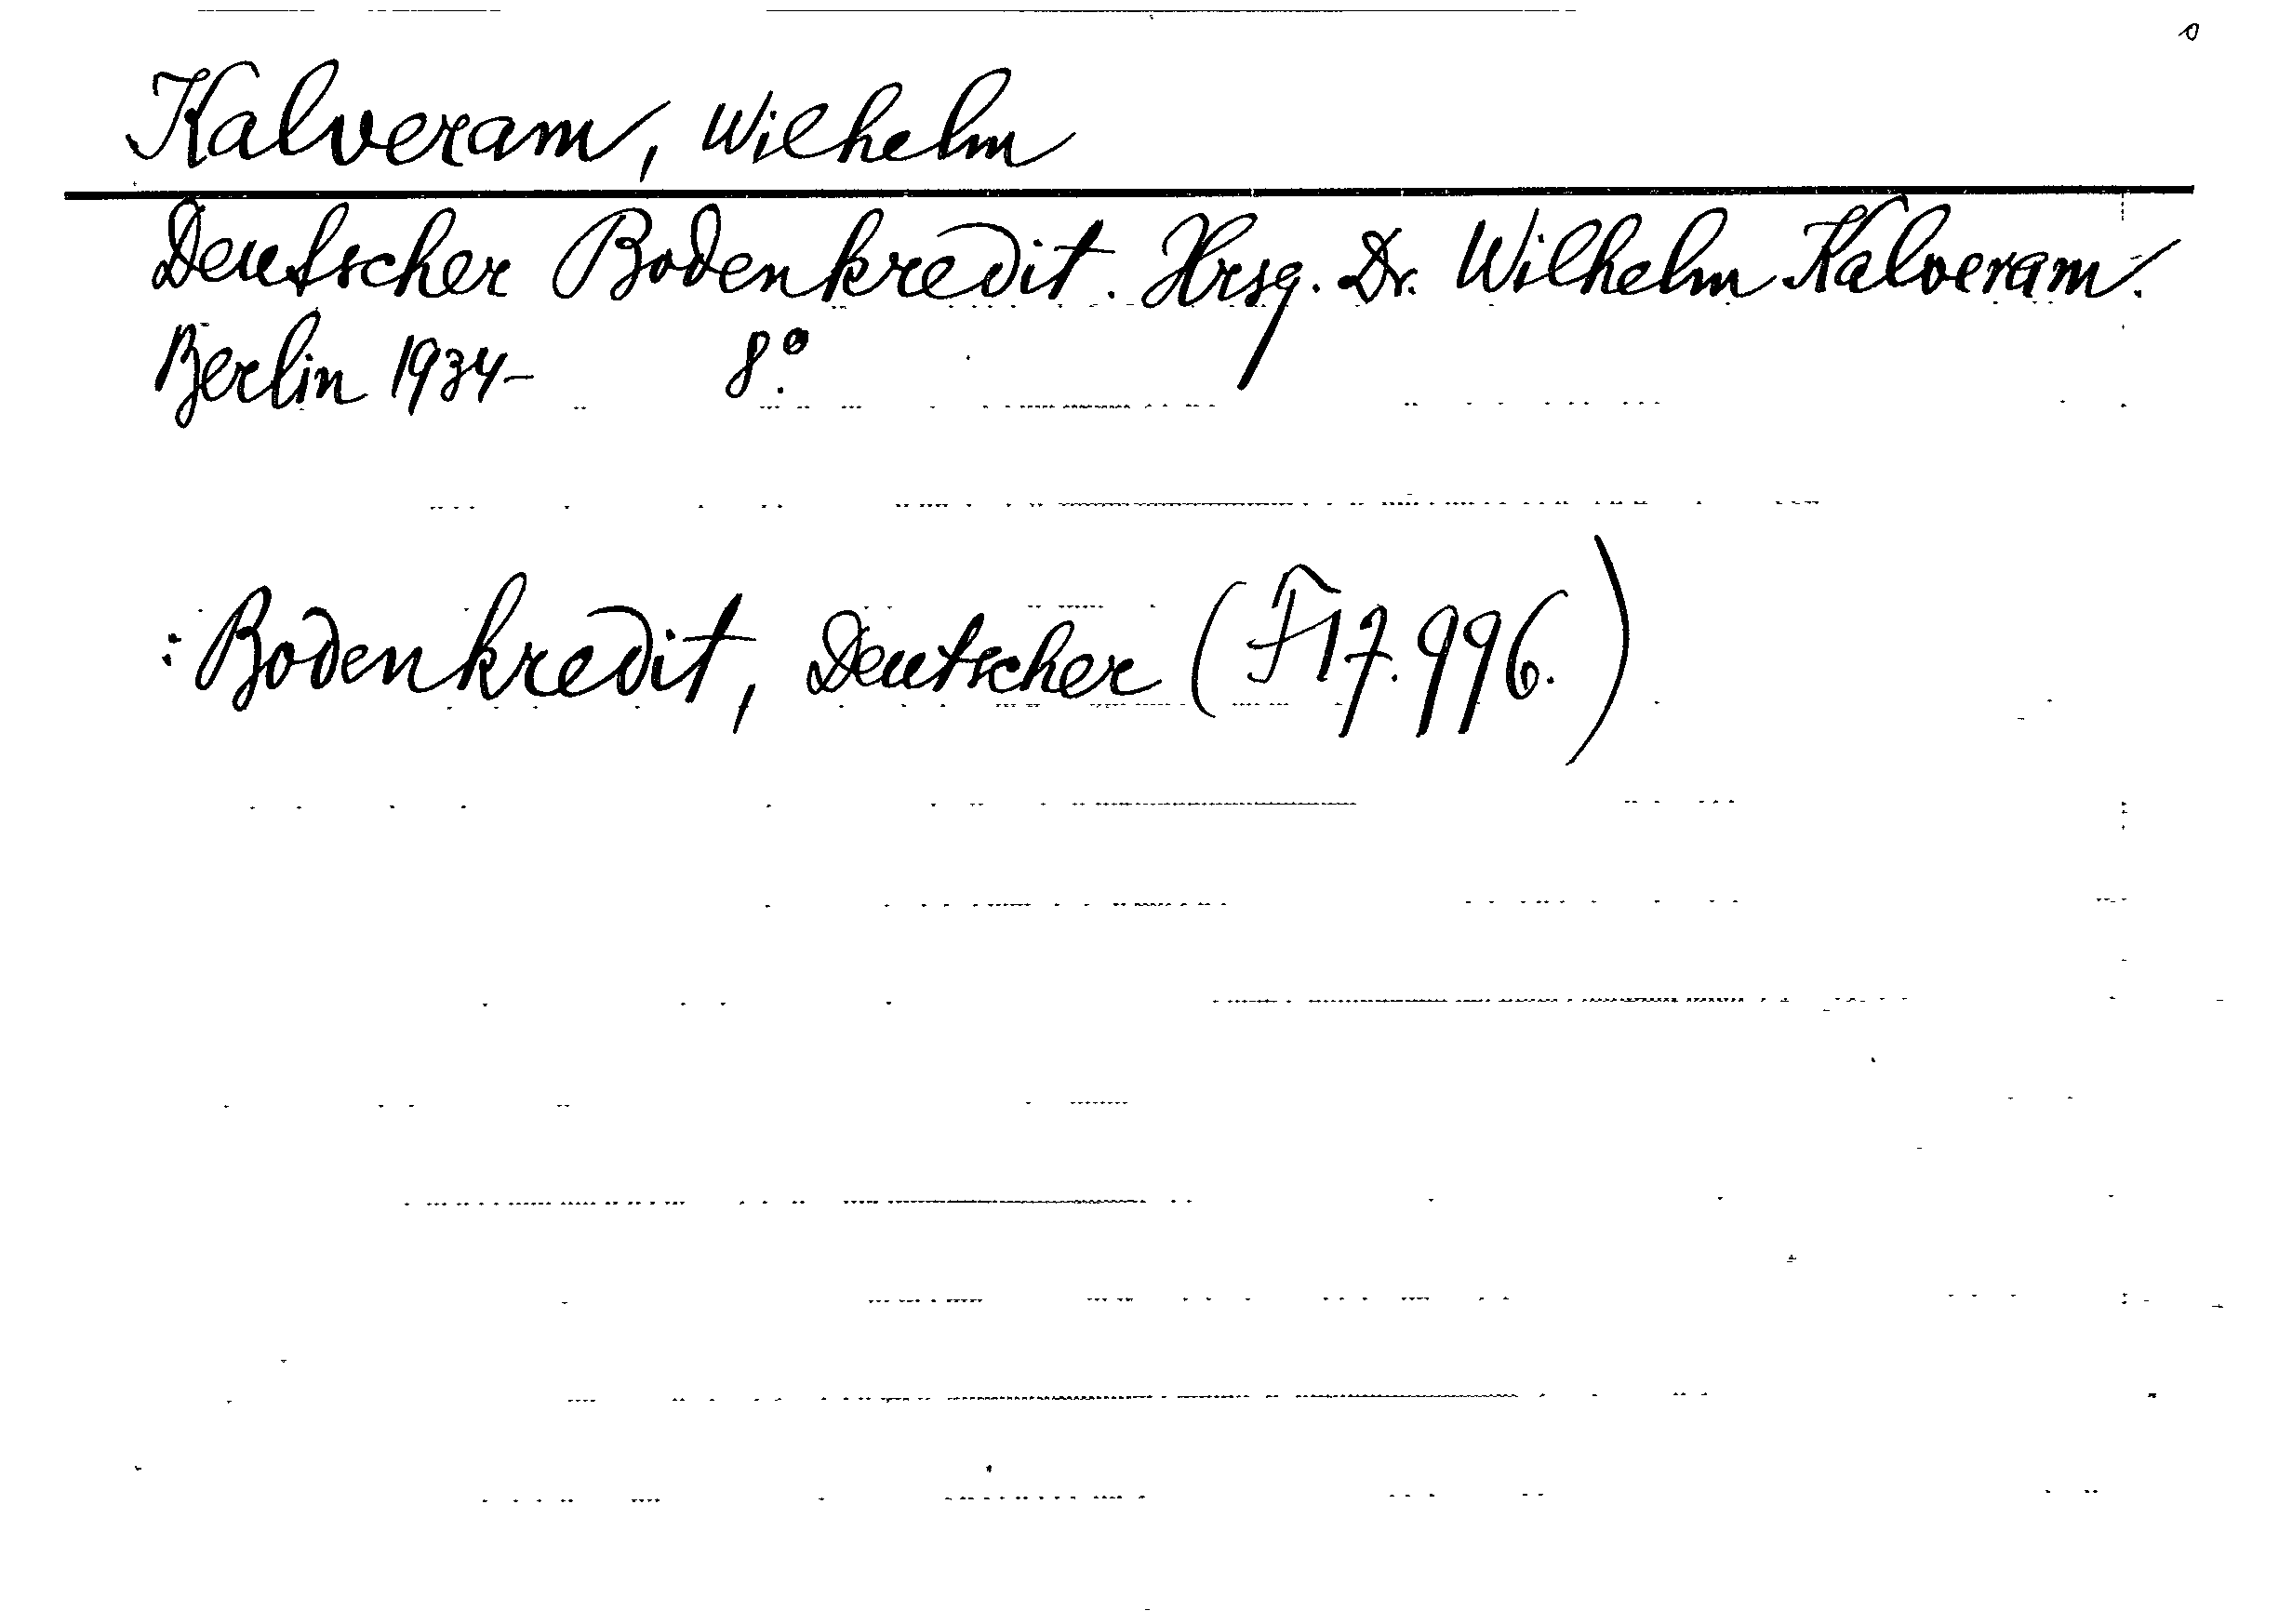 Kalveram, Wilhelm
Deutscher Bodenkredit. Hrsg. Dr. Wilhelm Kalveram.
Berlin 1934- 8°.
: Bodenkredit, Deutscher (F17.996.)